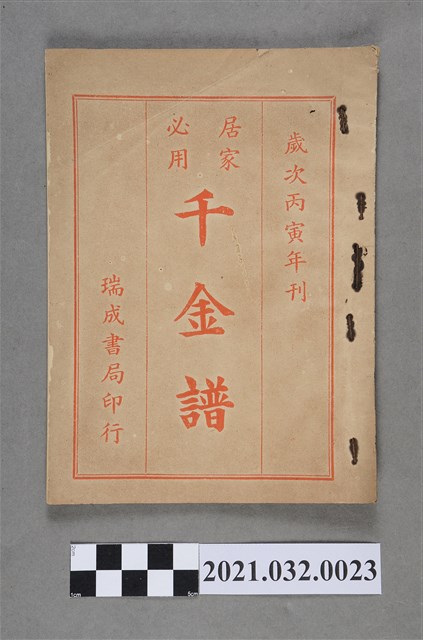 歲次丙寅年刊
居家
必用
千金譜
瑞成書局印行
2cm
1cm
5cm
2021.032.0023